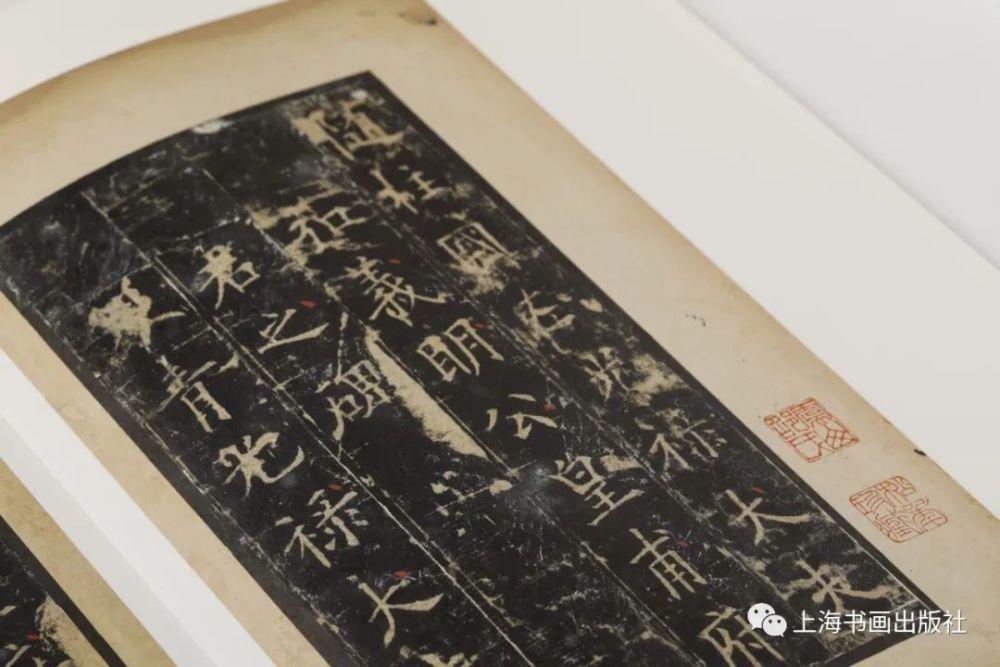 隨柱國左光祿大夫
弘義明公皇甫府
君之碑
青光祿大
上海书画出版社